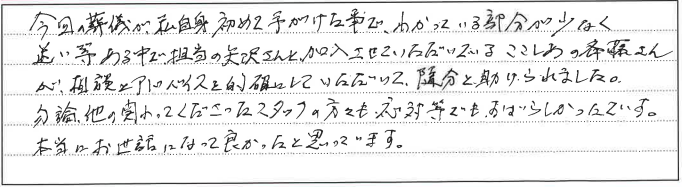 今回の葬儀が、私自身初めて手がけた事で、わかっている部分が少なく
迷い等ある中で担当の矢沢さんと、加入させていただいている こころあの斉藤さん
が、相談とアドバイスを的確にしていただいて、随分と助けられました。
勿論、他の関わってくださったスタッフの方々も、応対等でも、すばらしかったです。
本当にお世話になって良かったと思っています。